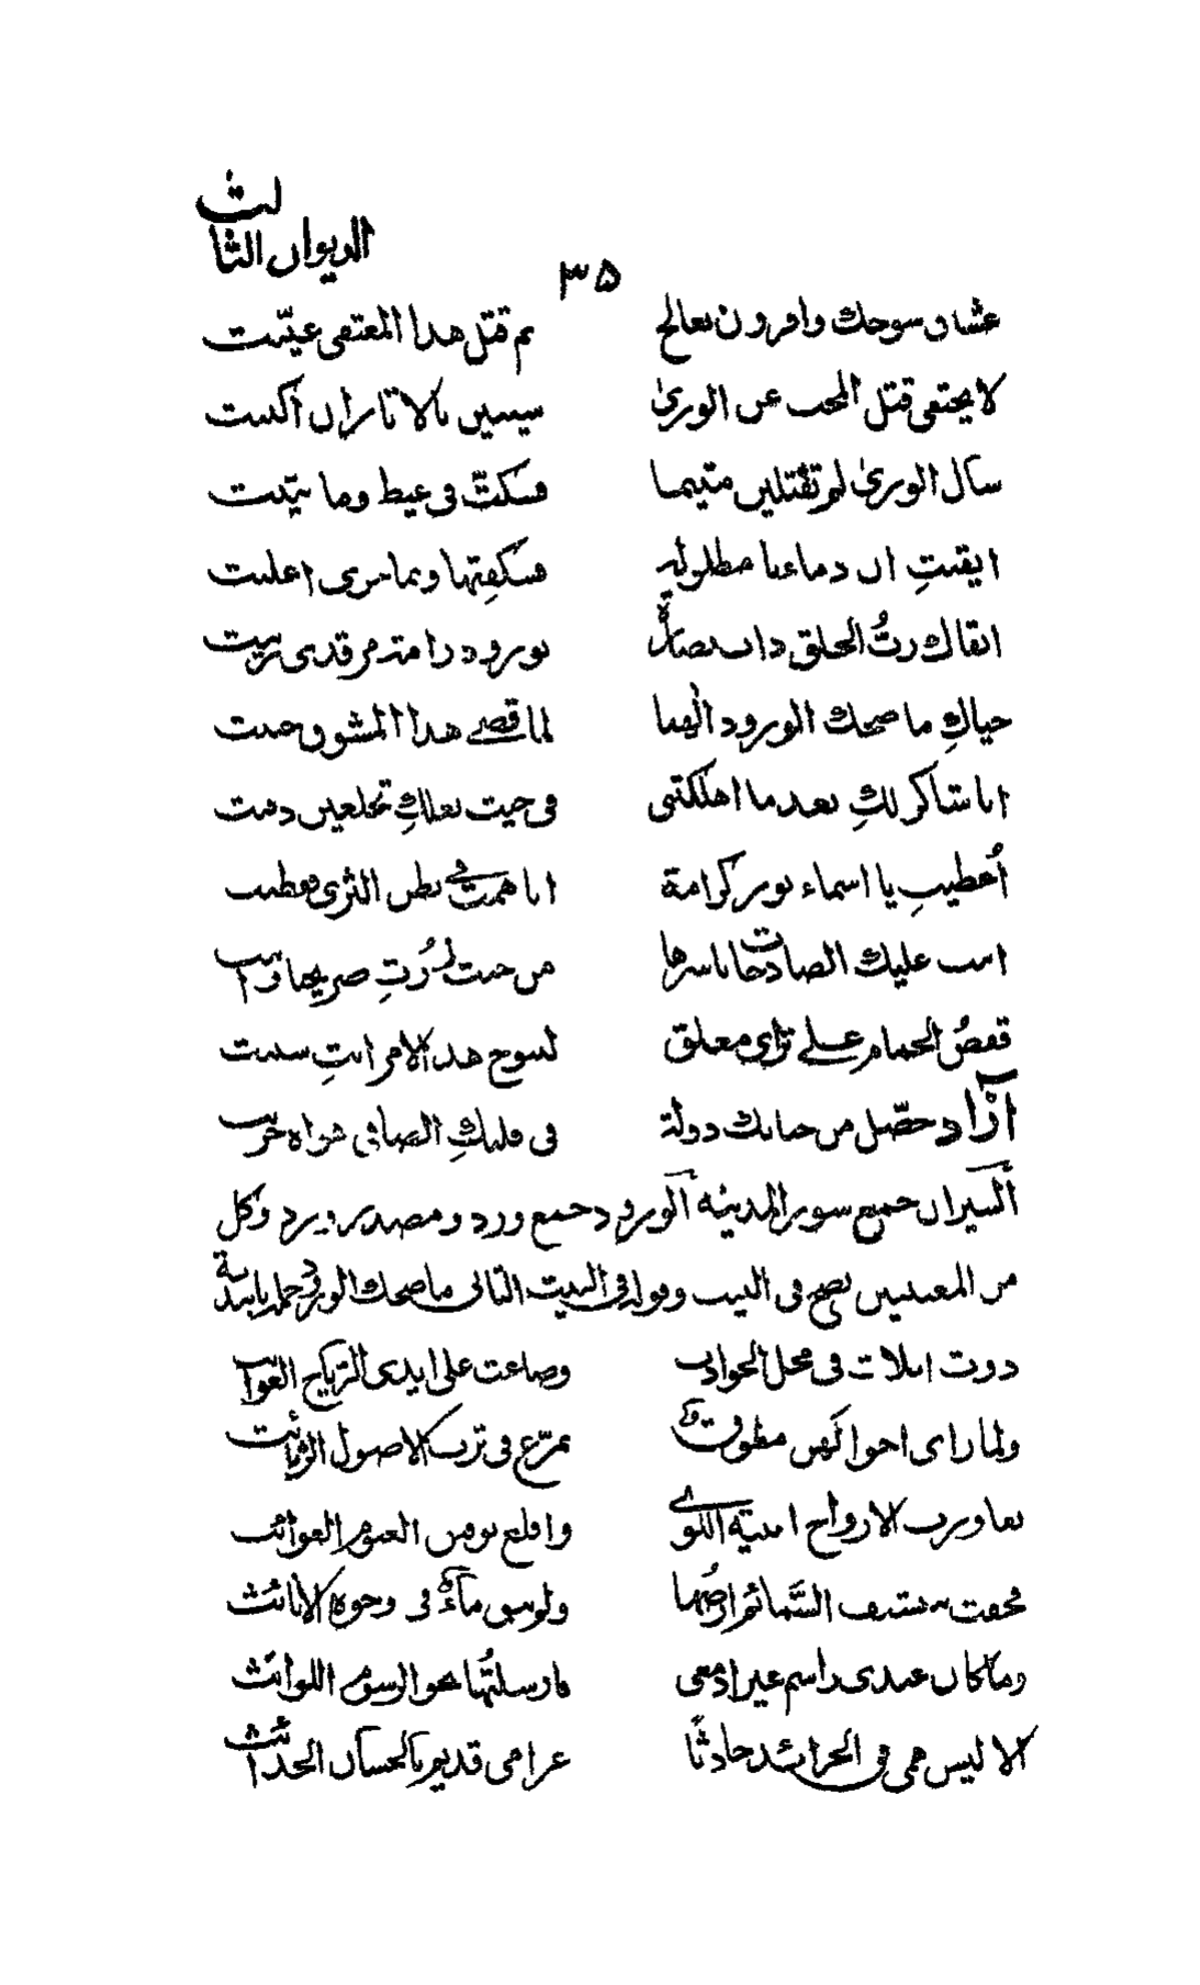 الديوان الثالث
٣٥
عشاق سوحك وافرون تعالي ثم قتل هذا المعتفي عينت
لا يختفي قتل المحب عن الورى سيبين بالآثار ان اكننت
سأل الورى لم تقتلين متيما فسكتّ في غيظ وما بيّنت
ايقنتِ ان دماءنا مطلولة فسكفتها وبما جرى اعلنت
ابقاك ربُّ الخلق ذات نضارة نور ود رامة مرقدي زينت
حياكِ ما ضحك الورود الهنا لما قضى هذا المشوق حننت
انا شاكر لكِ بعد ما اهلكتني في حيث نعلكِ تخلعين دفنت
أعطيتِ يا اسماء نور كرامة انا همت في بطن الثرى فقطنت
عليك الصادحات باسرها من حيث زرتِ ضريحنا
قفصُ الحمام على ثراي معلق لسوح هذا الامر انتِ سننت
آزاد حصّل من جنابك دولة في قلبكِ الصافي هواه خزنت
السيران جمع سور المدينة الورود جمع ورد ومصدر ورد وكل
من المعنيين يصح في البيت وقوله في البيت الثاني ما ضحك الورود
دوت اثلات في محل الحوادث وضاعت على ايدي الرياح العوائث
ولما رأى احوالهن مطوق تمرّغ في ترب الاصول الرثائث
تعاورت الارواح ابنية اللوى واقلع نوهن الغيوم الغوائث
محفت نستف السمائم ارضها ولم يبق ماء في وجوه الاثائث
وما كان عندي راسم غير ادمعي فارسلتُها نحو الرسوم اللوائث
الا ليس همي في الخرائد حادثًا غرامي قديم بالحسان الحدائث